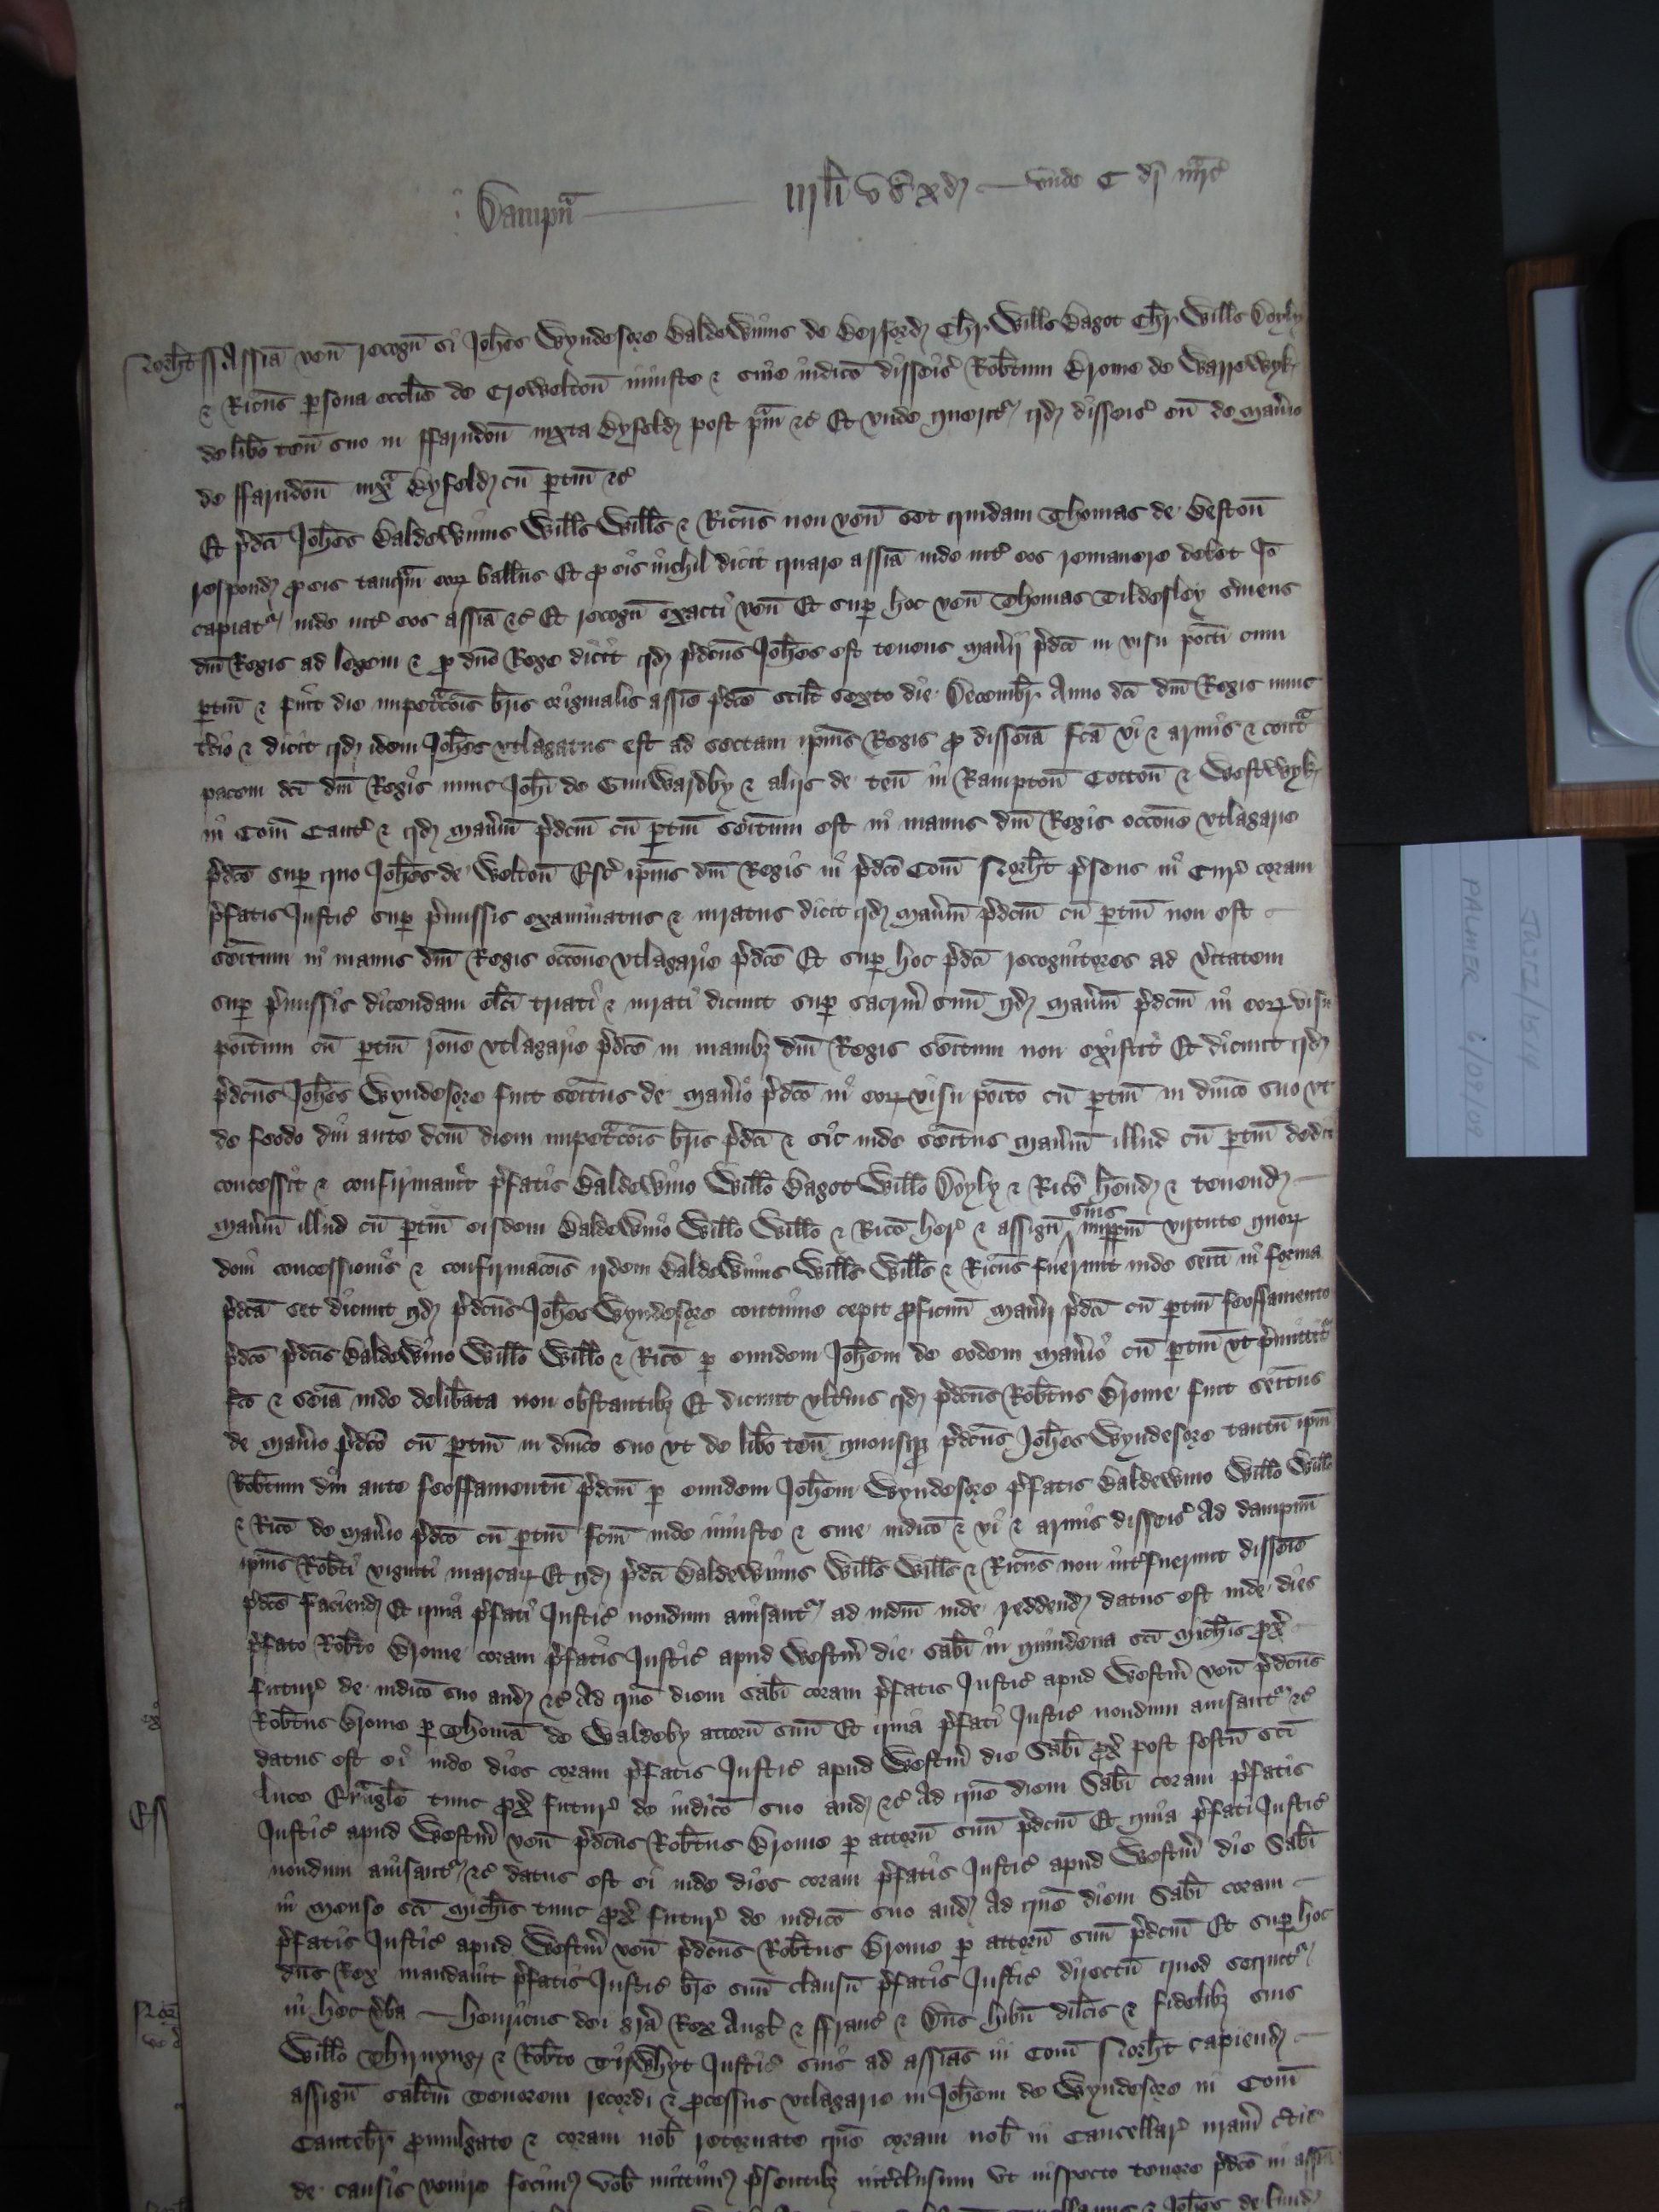 Dampna iiij li v s x d — unde C di marc
Norht ss Assisa ven recogn si Johes Wyndesore Baldewinus de Berford Chr Wills Bagot Chr Wills Doyly
& Ricus psona ecclie de Crowelton iniuste & sine iudico disseis Robtum Brome de Warrewyk
de libo ten suo in ffarndon iuxta Byfeld post pm &c Et unde querit qd disseis eu de Manio
de ffarndon iux Byfeld cu ptin &c
Et pdci Johes Baldewinus Wills Wills & Ricus non ven set quidam Thomas de Beston
respond p eis tanqm eor ballius Et p eis nichil dicit quare assia inde int eos remanere debet Io
capiat inde int eos assia &c Et recogn exacti ven Et sup hoc ven Thomas Tildesley sviens
dni Regis ad legem & p dno Rege dicit qd pdcus Johes est tenens Manij pdci in visu positi cum
ptin & fuit die impetracois bris originalis assise pdce scilt sexto die Decembr Anno dci dni Regis nunc
tcio & dicit qd idem Johes utlagatus est ad sectam ipius Regis p disseisa fca vi & armis & contra
pacem dci dni Regis nunc Johi de Gunwardby & alijs de ten in Rampton Cotton & Westwyk
in Com Cant & qd Manium pdcm cu ptin seitum est in manus dni Regis occone utlagarie
pdce sup quo Johes de Welton Esc ipius dni Regis in pdco Com Norht psens in Cur coram
pfatis Justic sup pmissis examinatus & iuratus dicit qd Manium pdcm cu ptin non est
seitum in manus dni Regis occone utlagarie pdce Et sup hoc pdci recognitores ad vitatem
sup pmissis dicendam elci triati & iurati dicunt sup sacrm suu qd Manium pdcm in eor visu
positum cu ptin rone utlagarie pdce in manibz dni Regis seitum non existit Et dicunt qd
pdcus Johes Wyndesore fuit seitus de Manio pdco in eor visu posito cu ptin in dnico suo ut
de feodo diu ante dcm diem impetracois bris pdci & sic inde seitus Manium illud cu ptin dedit
concessit & confirmavit pfatis Baldewino Willo Bagot Willo Doyly & Rico hend & tenend
Manium illud cu ptin eisdem Baldewino Willo Willo & Rico her & assign suis imppm virtute quor
doni concessionis & confirmacois ijdem Baldewinus Wills Wills & Ricus fuerunt inde seiti in forma
pdca set dicunt qd pdcus Johes Wyndesore continue cepit pficuum Manij pdci cu ptin feoffamento
pdco pdcis Baldewino Willo Willo & Rico p eundem Johem de eodem Manio cu ptin ut pmittit
fco & seisia inde delibata non obstantibz Et dicunt ultius qd pdcus Robtus Brome fuit seitus
de Manio pdco cu ptin in dnico suo ut de libo ten quousq pdcus Johes Wyndesore tantu ipm
Robtum diu ante feoffamentu pdcm p eundem Johem Wyndesore pfatis Baldewino Willo Willo
& Rico de Manio pdco cu ptin fcm inde iniuste & sine iudico & vi & armis disseis Ad dampnu
ipius Robti viginti marcar Et qd pdci Baldewinus Wills Wills & Ricus non intfuerunt disseise
pdce faciend Et quia pfati Justic nondum avisant ad iudm inde reddend datus est inde dies
pfato Robto Brome coram pfatis Justic apud Westm die Sabi in quindena sci Michis px
futur de iudico suo aud &c Ad que diem Sabi coram pfatis Justic apud Westm ven pdcus
Robtus Brome p Thoma de Waldeby attorn suu Et quia pfati Justic nondum avisant &c
datus est ei inde dies coram pfatis Justic apud Westm die Sabi px post festu sci
Luce Evangle tunc px futur de iudico suo aud &c Ad que diem Sabi coram pfatis
Justic apud Westm ven pdcus Robtus Brome p attorn suu pdcm Et quia pfati Justic
nondum avisant &c datus est ei inde dies coram pfatis Justic apud Westm die Sabi
in mense sci Michis tunc px futur de iudico suo aud Ad que diem Sabi coram
pfatis Justic apud Westm ven pdcus Robtus Brome p attorn suu pdcm Et sup hoc
dns Rex mandavit pfatis Justic bre suu clausu pfatis Justic directu quod sequit
in hec vba — Henricus dei gra Rex Angl & ffranc & Dns Hibn dilcis & fidelibz suis
Willo Thirnyng & Robto Tirwhyt Justic suis ad assias in Com Norht capiend
assign saltm Tenorem recordi & pcessus utlagarie in Johem de Wyndesore in Com
Cantebr pmulgate & coram nob retornate que coram nob in Cancellar nram ctis
de causis venire fecim vob mittim psentibz intclusum Ut inspecto tenore pdco in assia
& Johes de
JUST 1/1514
PALMER 6/09/02